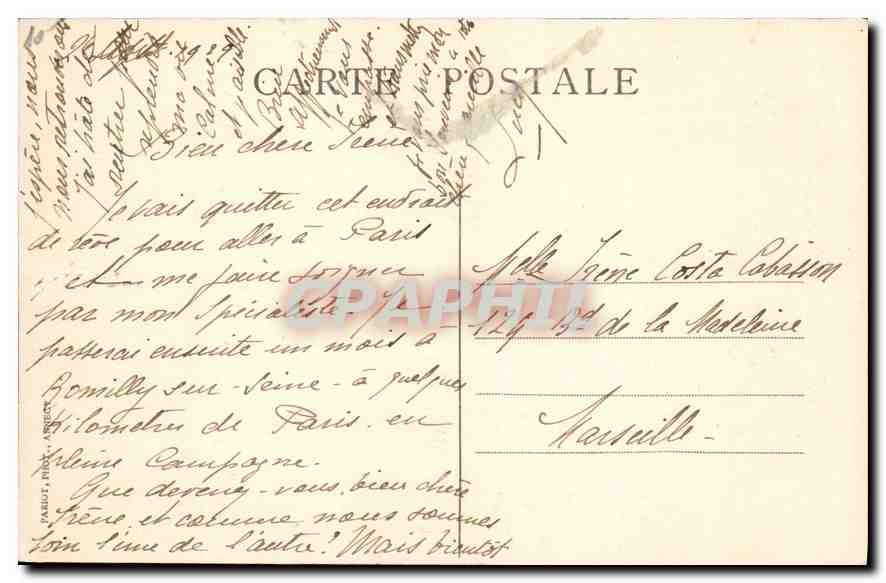 CARTE POSTALE
Août 1929
Bien chère Irène,
Je vais quitter cet endroit
de rêve pour aller à Paris
et me faire soigner
par mon spécialiste. Je
passerai ensuite un mois à
Romilly sur-Seine - à quelques
Kilomètres de Paris en
pleine Campagne.
Que devenez-vous, bien chère
Irène, et comme nous sommes
loin l'une de l'autre! Mais bientôt
j'espère, nous
nous retrouverons
J'ai hâte de
rentrer
Calme
et paisible
Bien
affectueusement
je vous
embrasse
Melle Irène Costa Cabasson
129 Bd de la Madeleine
Marseille -
PARIOT, PHOT., ANNECY
CPAPHIL